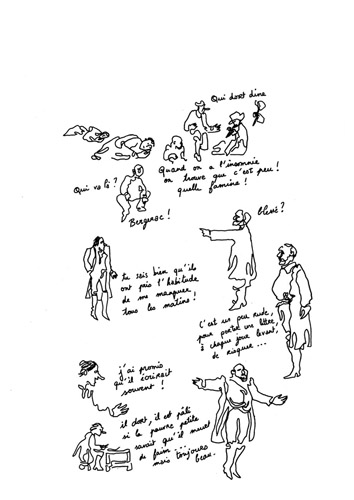 Qui dort dine
Quand on a l'insomnie
on trouve que c'est peu !
quelle famine !
Qui va là ?
Bergerac !
blessé ?
tu sais bien qu'ils
ont pris l'habitude
de me manquer,
tous les matins !
C'est un peu rude,
pour porter une lettre,
à chaque jour levant,
de risquer ...
j'ai promis
qu'il écrirait
souvent !
il dort, il est pâli
si la pauvre petite
savait qu'il meurt
de faim ...
mais toujours
beau.